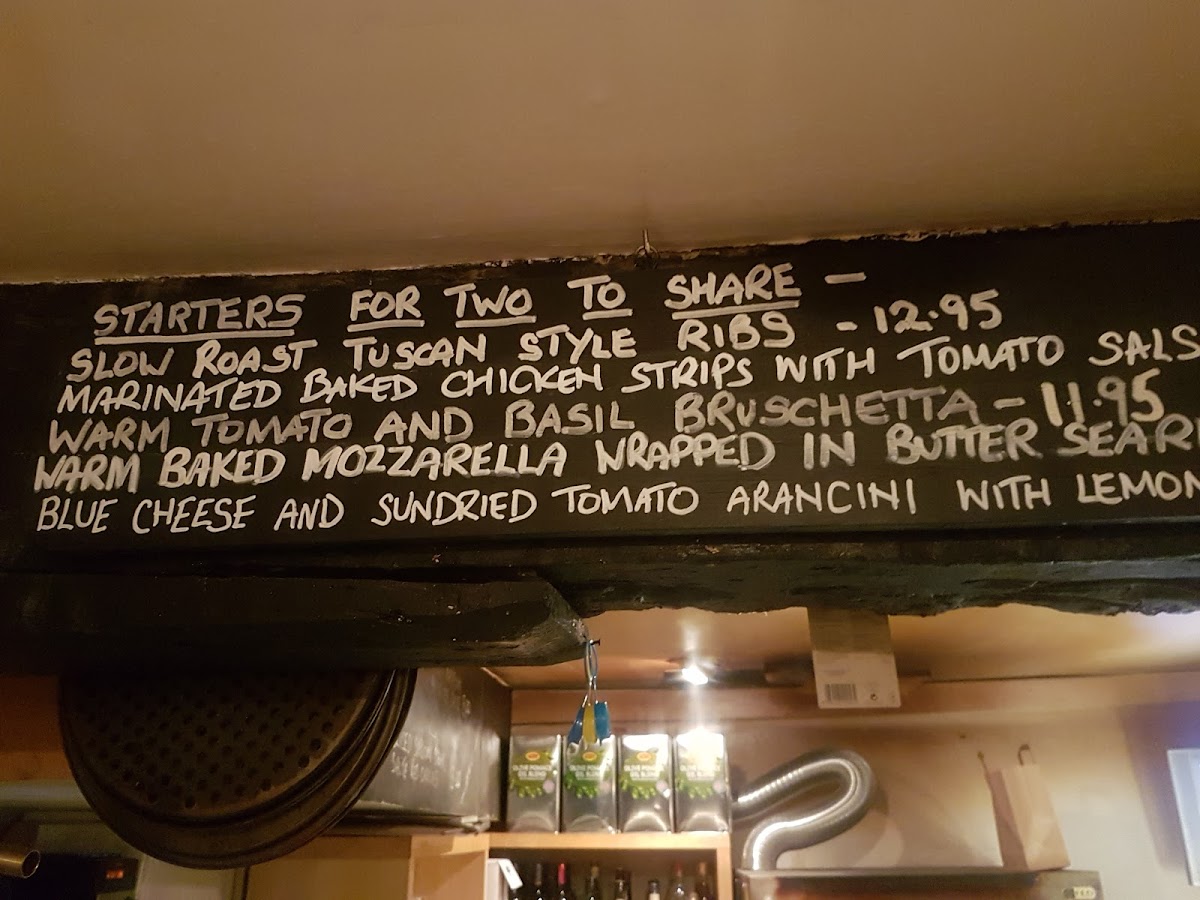 STARTERS FOR TWO TO SHARE -
SLOW ROAST TUSCAN STYLE RIBS - 12.95
MARINATED BAKED CHICKEN STRIPS WITH TOMATO SALS
WARM TOMATO AND BASIL BRUSCHETTA - 11.95
WARM BAKED MOZZARELLA WRAPPED IN BUTTER SEAR
BLUE CHEESE AND SUNDRIED TOMATO ARANCINI WITH LEMON